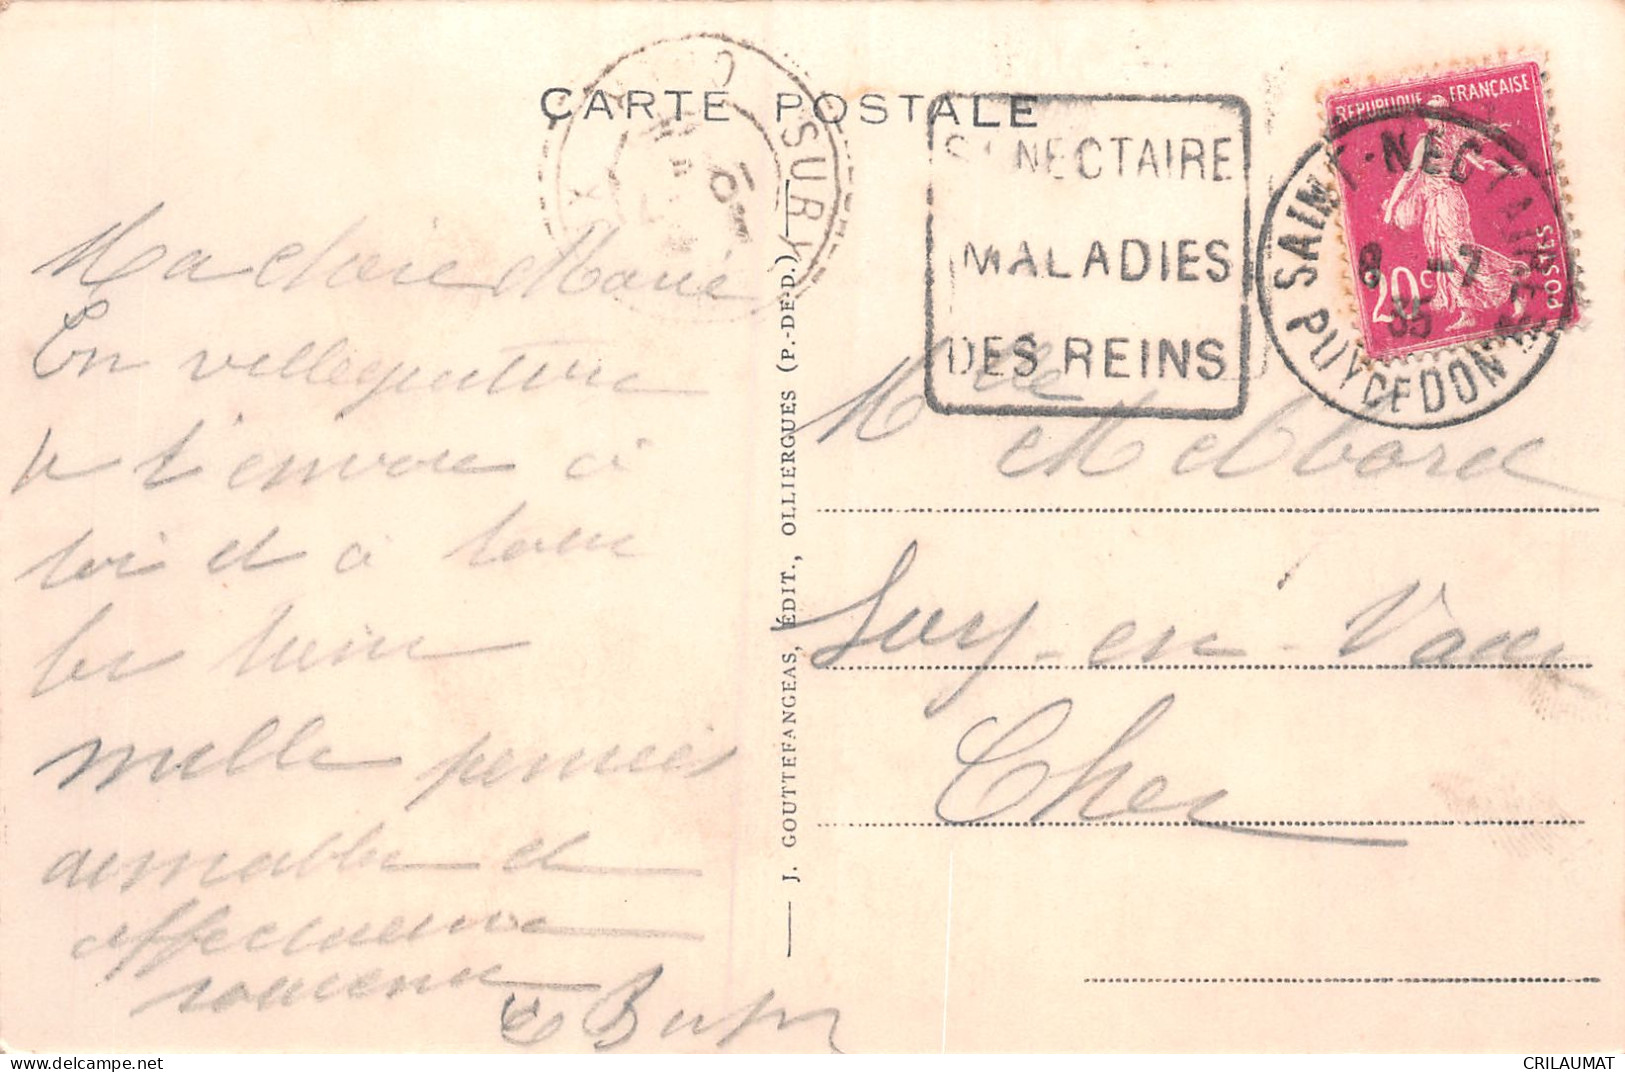 CARTE POSTALE
SURY
ST NECTAIRE
MALADIES
DES REINS
REPUBLIQUE FRANÇAISE
20c
POSTES
SAINT-NECTAIRE
8 -7
35
PUY DE DOME
Ma chère Marie
En villégiature
je t'envoie à
toi et à tous
les tiens
mille pensées
aimable et
affectueuse
souvenir
J. GOUTTEFANGEAS, ÉDIT., OLLIERGUES (P.-DE-D.)
Sury-en-Vaux
Cher
CRILAUMAT
delcampe.net